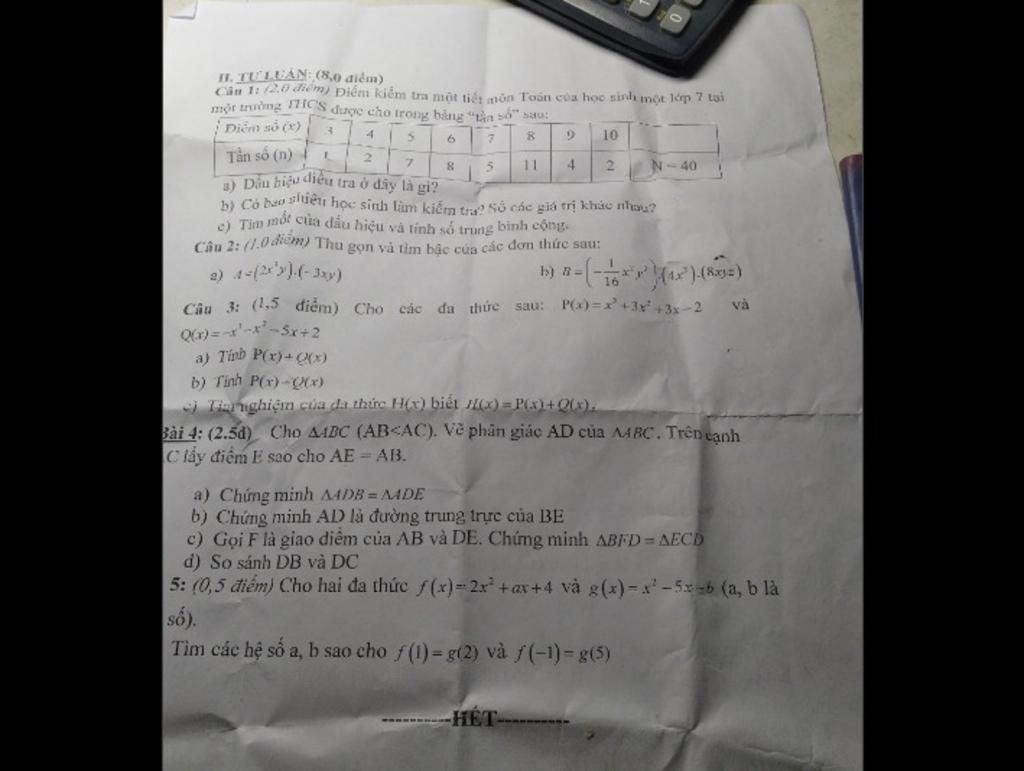 II. TỰ LUẬN: (8,0 điểm)
Câu 1: (2.0 điểm) Điểm kiểm tra một tiết môn Toán của học sinh một lớp 7 tại
một trường THCS được cho trong bảng "tần số" sau:
Điểm số (x) 3 4 5 6 7 8 9 10
Tần số (n) 1 2 7 8 5 11 4 2 N = 40
a) Dấu hiệu điều tra ở đây là gì?
b) Có bao nhiêu học sinh làm kiểm tra? Số các giá trị khác nhau?
c) Tìm mốt của dấu hiệu và tính số trung bình cộng.
Câu 2: (1.0 điểm) Thu gọn và tìm bậc của các đơn thức sau:
a) A=(2x³y).(-3xy) b) B=(-1/16 x²y²).(4x³).(8xyz)
Câu 3: (1,5 điểm) Cho các đa thức sau: P(x) = x³+3x²+3x-2 và
Q(x)=-x³-x²-5x+2
a) Tính P(x)+Q(x)
b) Tính P(x)-Q(x)
c) Tìm nghiệm của đa thức H(x) biết H(x)=P(x)+Q(x).
Bài 4: (2.5đ) Cho ΔABC (AB<AC). Vẽ phân giác AD của ΔABC. Trên cạnh
C lấy điểm E sao cho AE = AB.
a) Chứng minh ΔADB = ΔADE
b) Chứng minh AD là đường trung trực của BE
c) Gọi F là giao điểm của AB và DE. Chứng minh ΔBFD = ΔECD
d) So sánh DB và DC
5: (0,5 điểm) Cho hai đa thức f(x)=2x²+ax+4 và g(x)=x²-5x-b (a, b là
số).
Tìm các hệ số a, b sao cho f(1)=g(2) và f(-1)=g(5)
----------HẾT----------